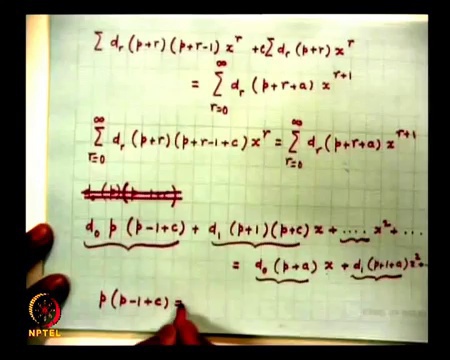 ∑ d_r (p+r)(p+r-1) x^r + c ∑ d_r (p+r) x^r
= ∑_{r=0}^{∞} d_r (p+r+a) x^{r+1}
∑_{r=0}^{∞} d_r (p+r)(p+r-1+c) x^r = ∑_{r=0}^{∞} d_r (p+r+a) x^{r+1}
d_0 p (p-1+c) + d_1 (p+1)(p+c) x + .... x^2 + ...
= d_0 (p+a) x + d_1 (p+1+a) x^2 + ..
p (p-1+c) =
NPTEL